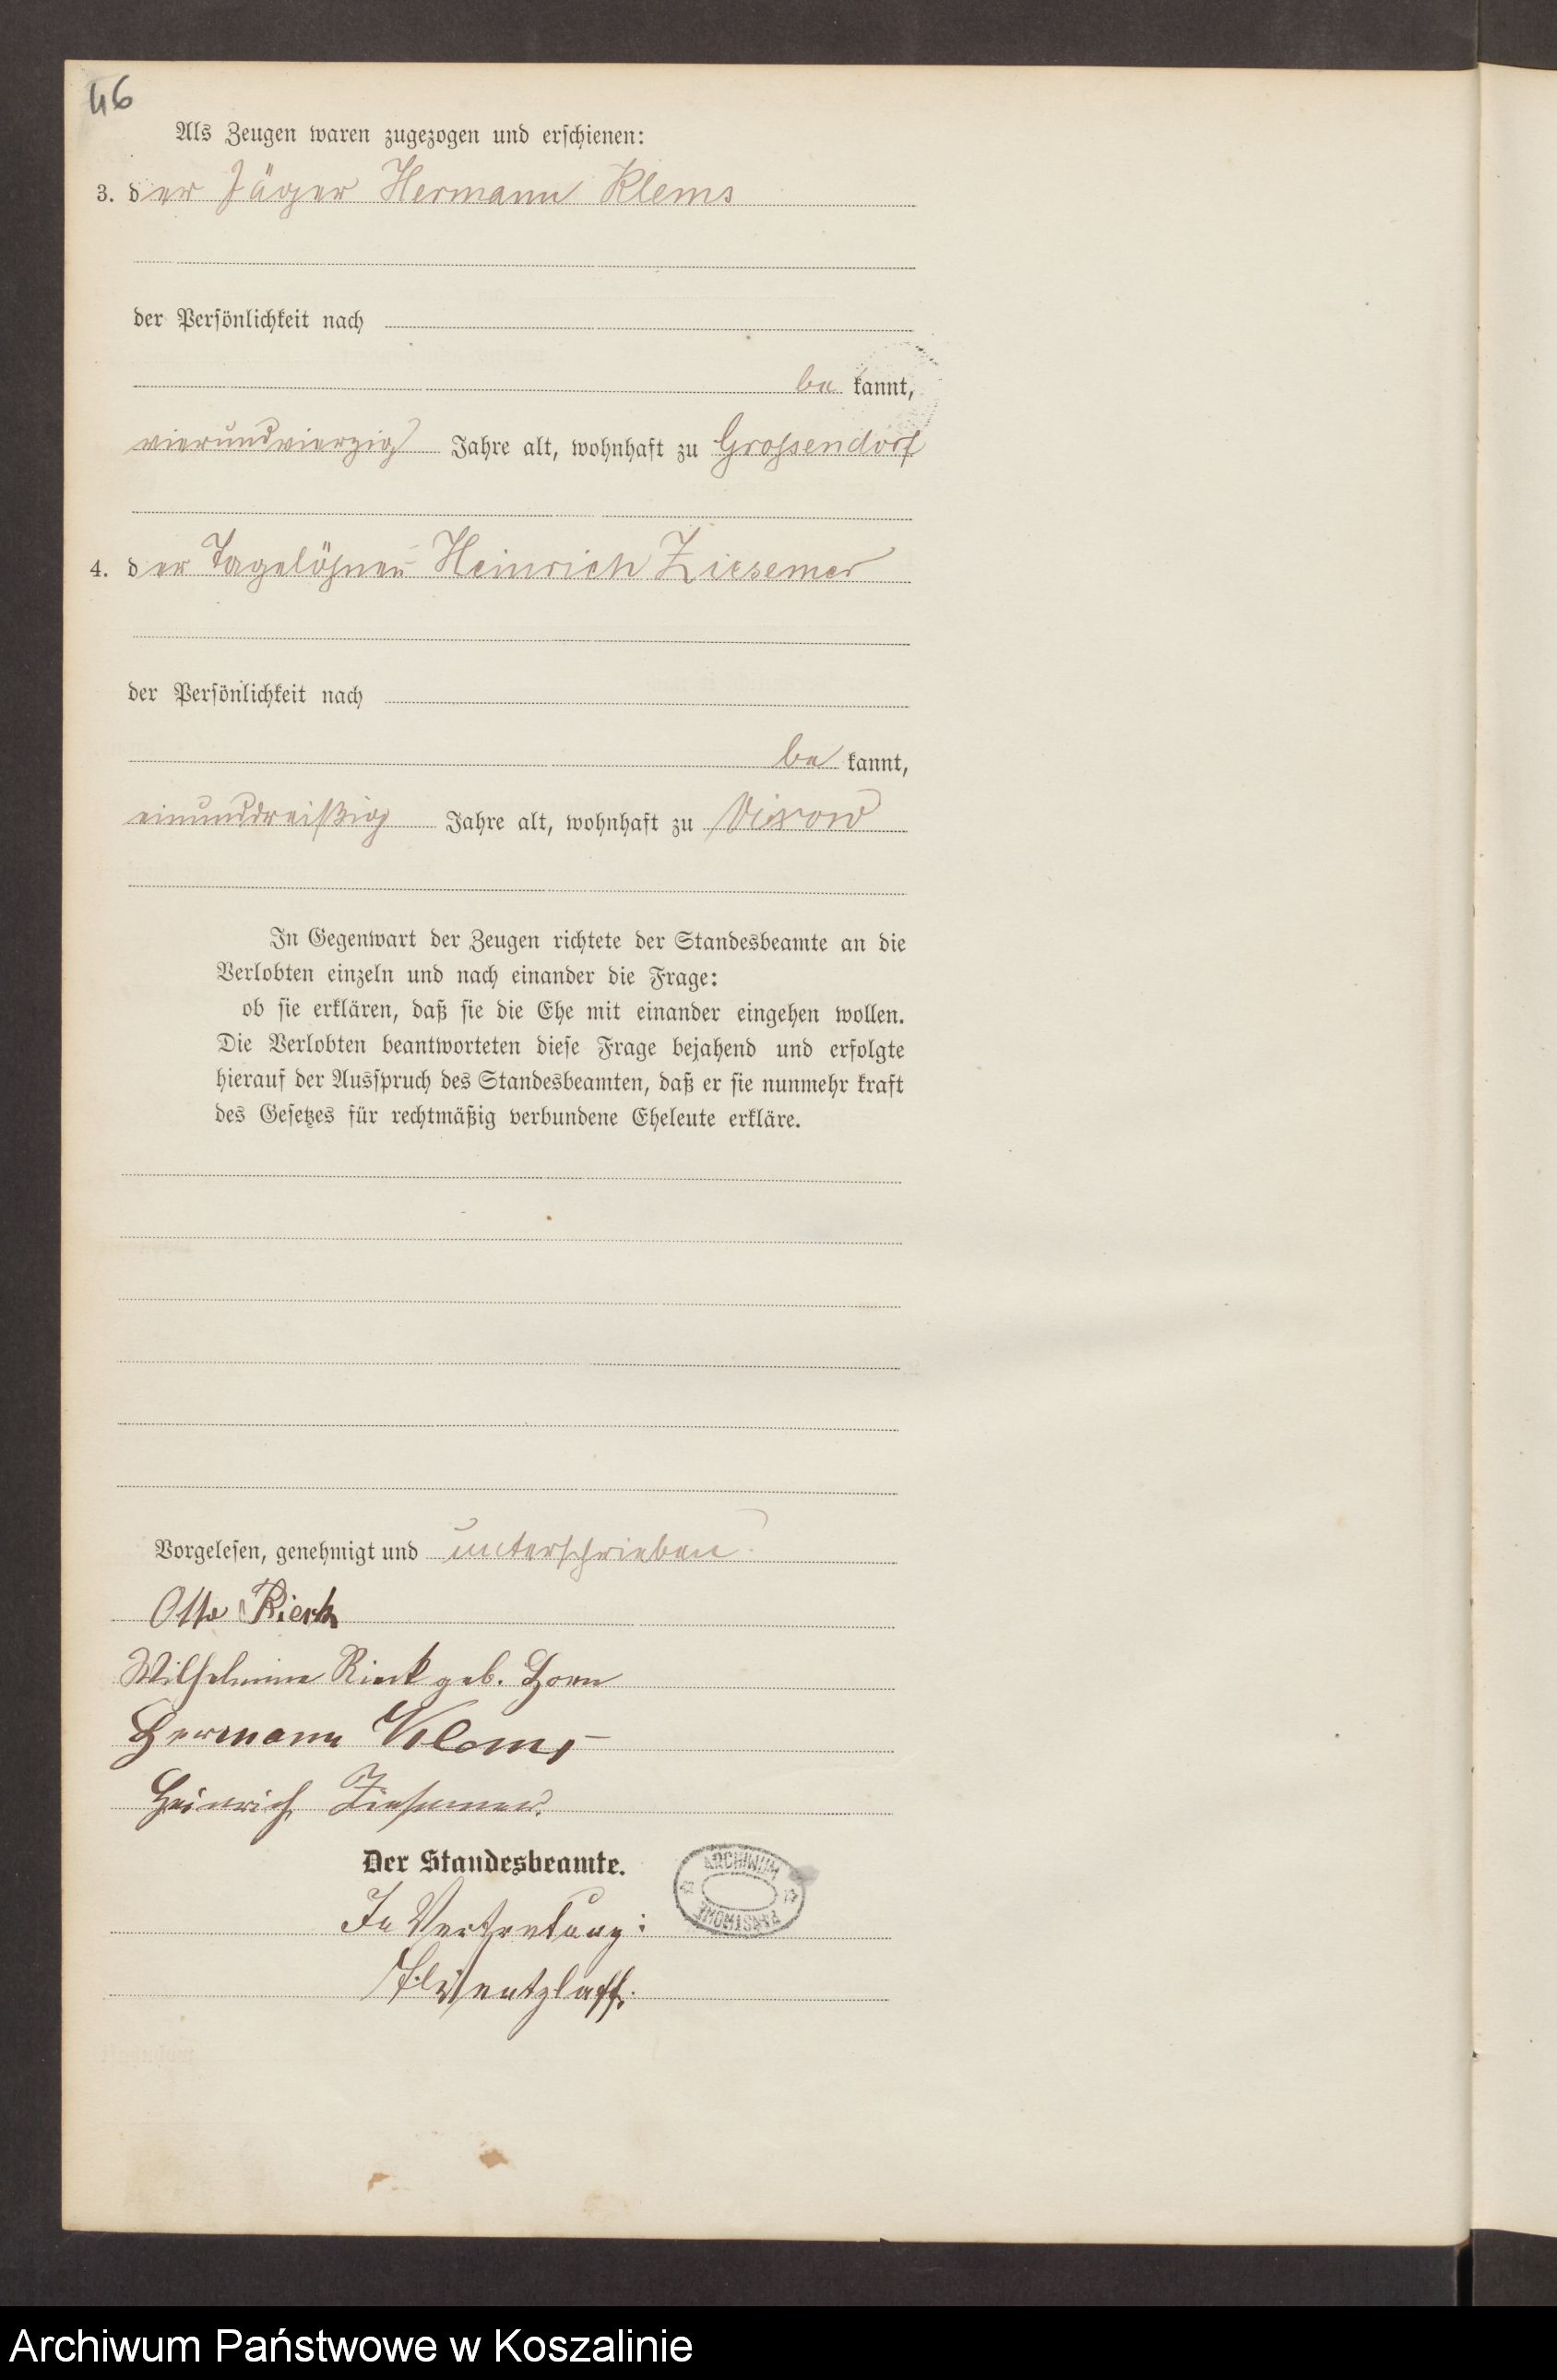 46
Als Zeugen waren zugezogen und erschienen:
3. der Jäger Hermann Klems
der Persönlichkeit nach
be kannt,
vierundvierzig Jahre alt, wohnhaft zu Grossendorf
4. der Tagelöhner Heinrich Ziesemer
der Persönlichkeit nach
be kannt,
einunddreißig Jahre alt, wohnhaft zu Vixow
In Gegenwart der Zeugen richtete der Standesbeamte an die
Verlobten einzeln und nach einander die Frage:
ob sie erklären, daß sie die Ehe mit einander eingehen wollen.
Die Verlobten beantworteten diese Frage bejahend und erfolgte
hierauf der Ausspruch des Standesbeamten, daß er sie nunmehr kraft
des Gesetzes für rechtmäßig verbundene Eheleute erkläre.
Vorgelesen, genehmigt und unterschrieben.
Otto Rieck
Wilhelmine Rieck geb. Horn
Hermann Klems
Heinrich Ziesemer.
Der Standesbeamte.
ARCHIWUM
PAŃSTWOWE
In Vertretung:
Archiwum Państwowe w Koszalinie